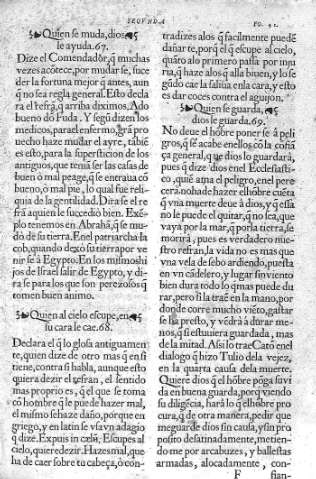 SEGVNDA
FO. 41.
Quien se muda, dios
le ayuda. 67.
Dize el Comendador, q̃ muchas
vezes acótece, por mudar se, suce
der la fortuna mejor q̃ antes, aun
q̃ no sea regla general. Esto decla
ra el refrã, q̃ arriba diximos. Ado
bueno dõ Fuda. Y segũ dizen los
medicos, para el enfermo, grã pro
uecho haze mudar el ayre, tãbiẽ
es esto, para la supersticion de los
antiguos, que tenia ser las casas de
buen o mal peage, q̃ se entraua cõ
bueno, o mal pie, lo qual fue reli-
quia de la gentilidad. Dira se el re
frã aquien le succedio bien. Exẽ-
plo tenemos en Abrahã, q̃ se mu-
dó de su tierra. En el patriarcha Ia
cob, quando dexo su tierra por ve
nir se à Egypto. En los mismos hi
jos de Israel salir de Egypto, y di-
ra se para los que son perezosos q̃
tomen buen animo.
Quien al cielo escupe, en
su cara le cae. 68.
Declara el q̃ lo glosa antiguamen
te, quien dize de otro mas q̃ en si
tiene, contra si habla, aunque esto
quiera dezir el refran, el sentido
mas proprio es, q̃ el que se toma
cõ hombre q̃ le puede hazer mal,
el mismo se haze daño, porque en
griego, y en latin se vsa vn adagio
q̃ dize. Expuis in cœlũ, Escupes al
cielo, quiere dezir. Hazes mal, que
ha de caer sobre tu cabeça, ò con-
tradizes alos q̃ facilmente puedẽ
dañarte, porq̃ el q̃ escupe al cielo,
quãto alo primero passa por inju
ria, q̃ haze alos q̃ alla biuen, y lo se
gũdo cae la saliua enla cara, y esto
es dar coces contra el aguijon.
Quien se guarda,
dios le guarda. 69.
No deue el hõbre poner se à peli
gros, q̃ se acabe en ellos, cõ la cõfiã
ça general, que dios lo guardarà,
pues q̃ dize dios enel Ecclesiasti-
co, quiẽ ama el peligro, enel pere
cera: no ha de hazer el hõbre cuẽta
q̃ vna muerte deue à dios, y q̃ essa
no le puede el quitar, q̃ no sea, que
vaya por la mar, q̃ por la tierra, se
morirà, pues es verdadero nue-
stro refran, la vida no es mas que
vna vela de sebo ardiendo, puesta
en vn cãdelero, y lugar sin viento
bien dura todo lo q̃ mas puede du
rar, pero si la traẽ en la mano, por
donde corre mucho viẽto, gastar
se ha presto, y vẽdrà à durar me-
nos, q̃ si estuuiera guardada, mas
de la mitad. Assi lo trae Catõ en el
dialogo q̃ hizo Tulio dela vejez,
en la quarta causa dela muerte.
Quiere dios q̃ el hõbre põga su vi
da en buena guarda, por q̃ viendo
su diligẽcia, harà lo q̃ el hõbre pro
cura, q̃ de otra manera, pedir que
me guarde dios sin causa, y sin pro
posito desatinadamente, metien-
do me por arcabuzes, y ballestas
armadas, alocadamente, con-
F
fian-